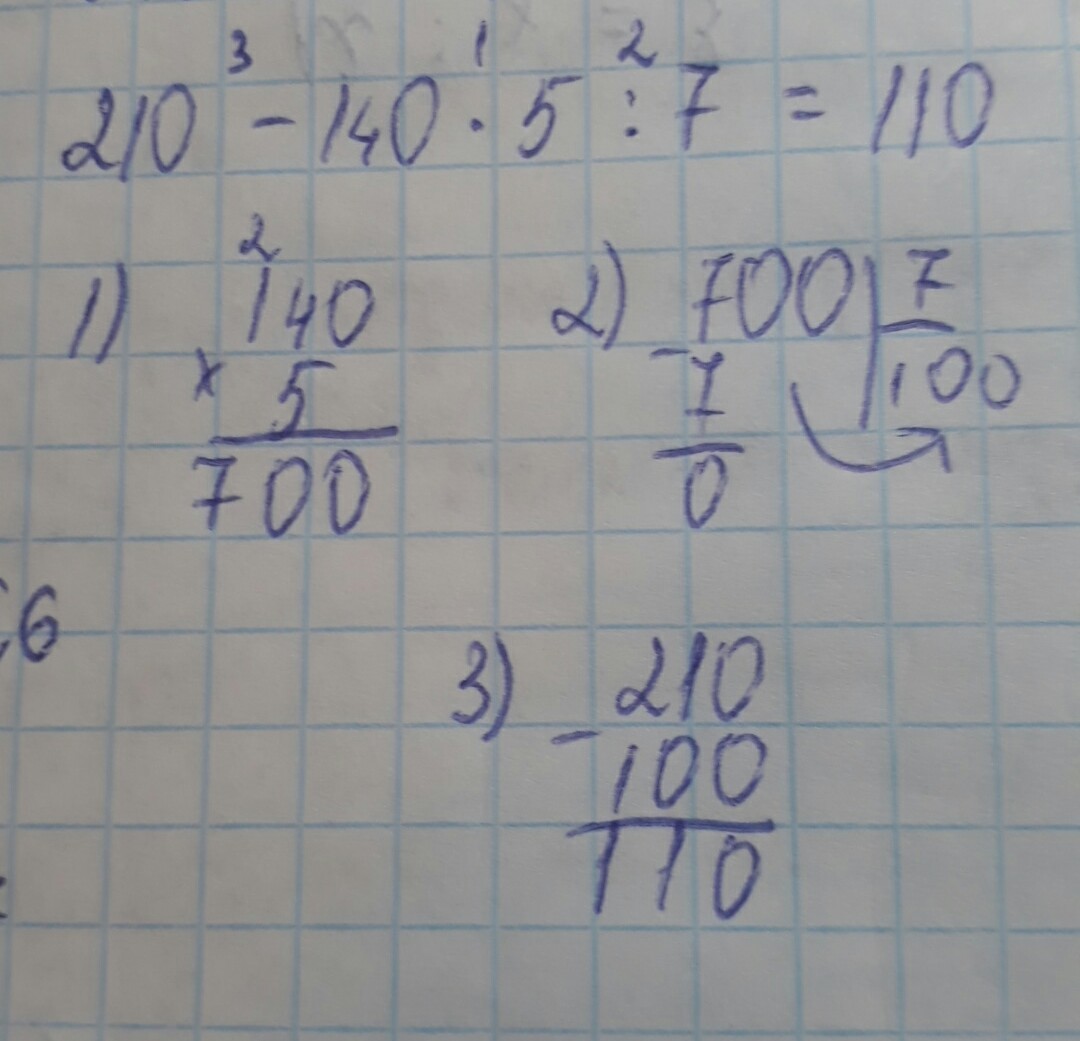 3 1 2
210 - 140 · 5 : 7 = 110
1) 2
140
x 5
700
2) - 700 | 7
7 100
0
6
3) - 210
100
110